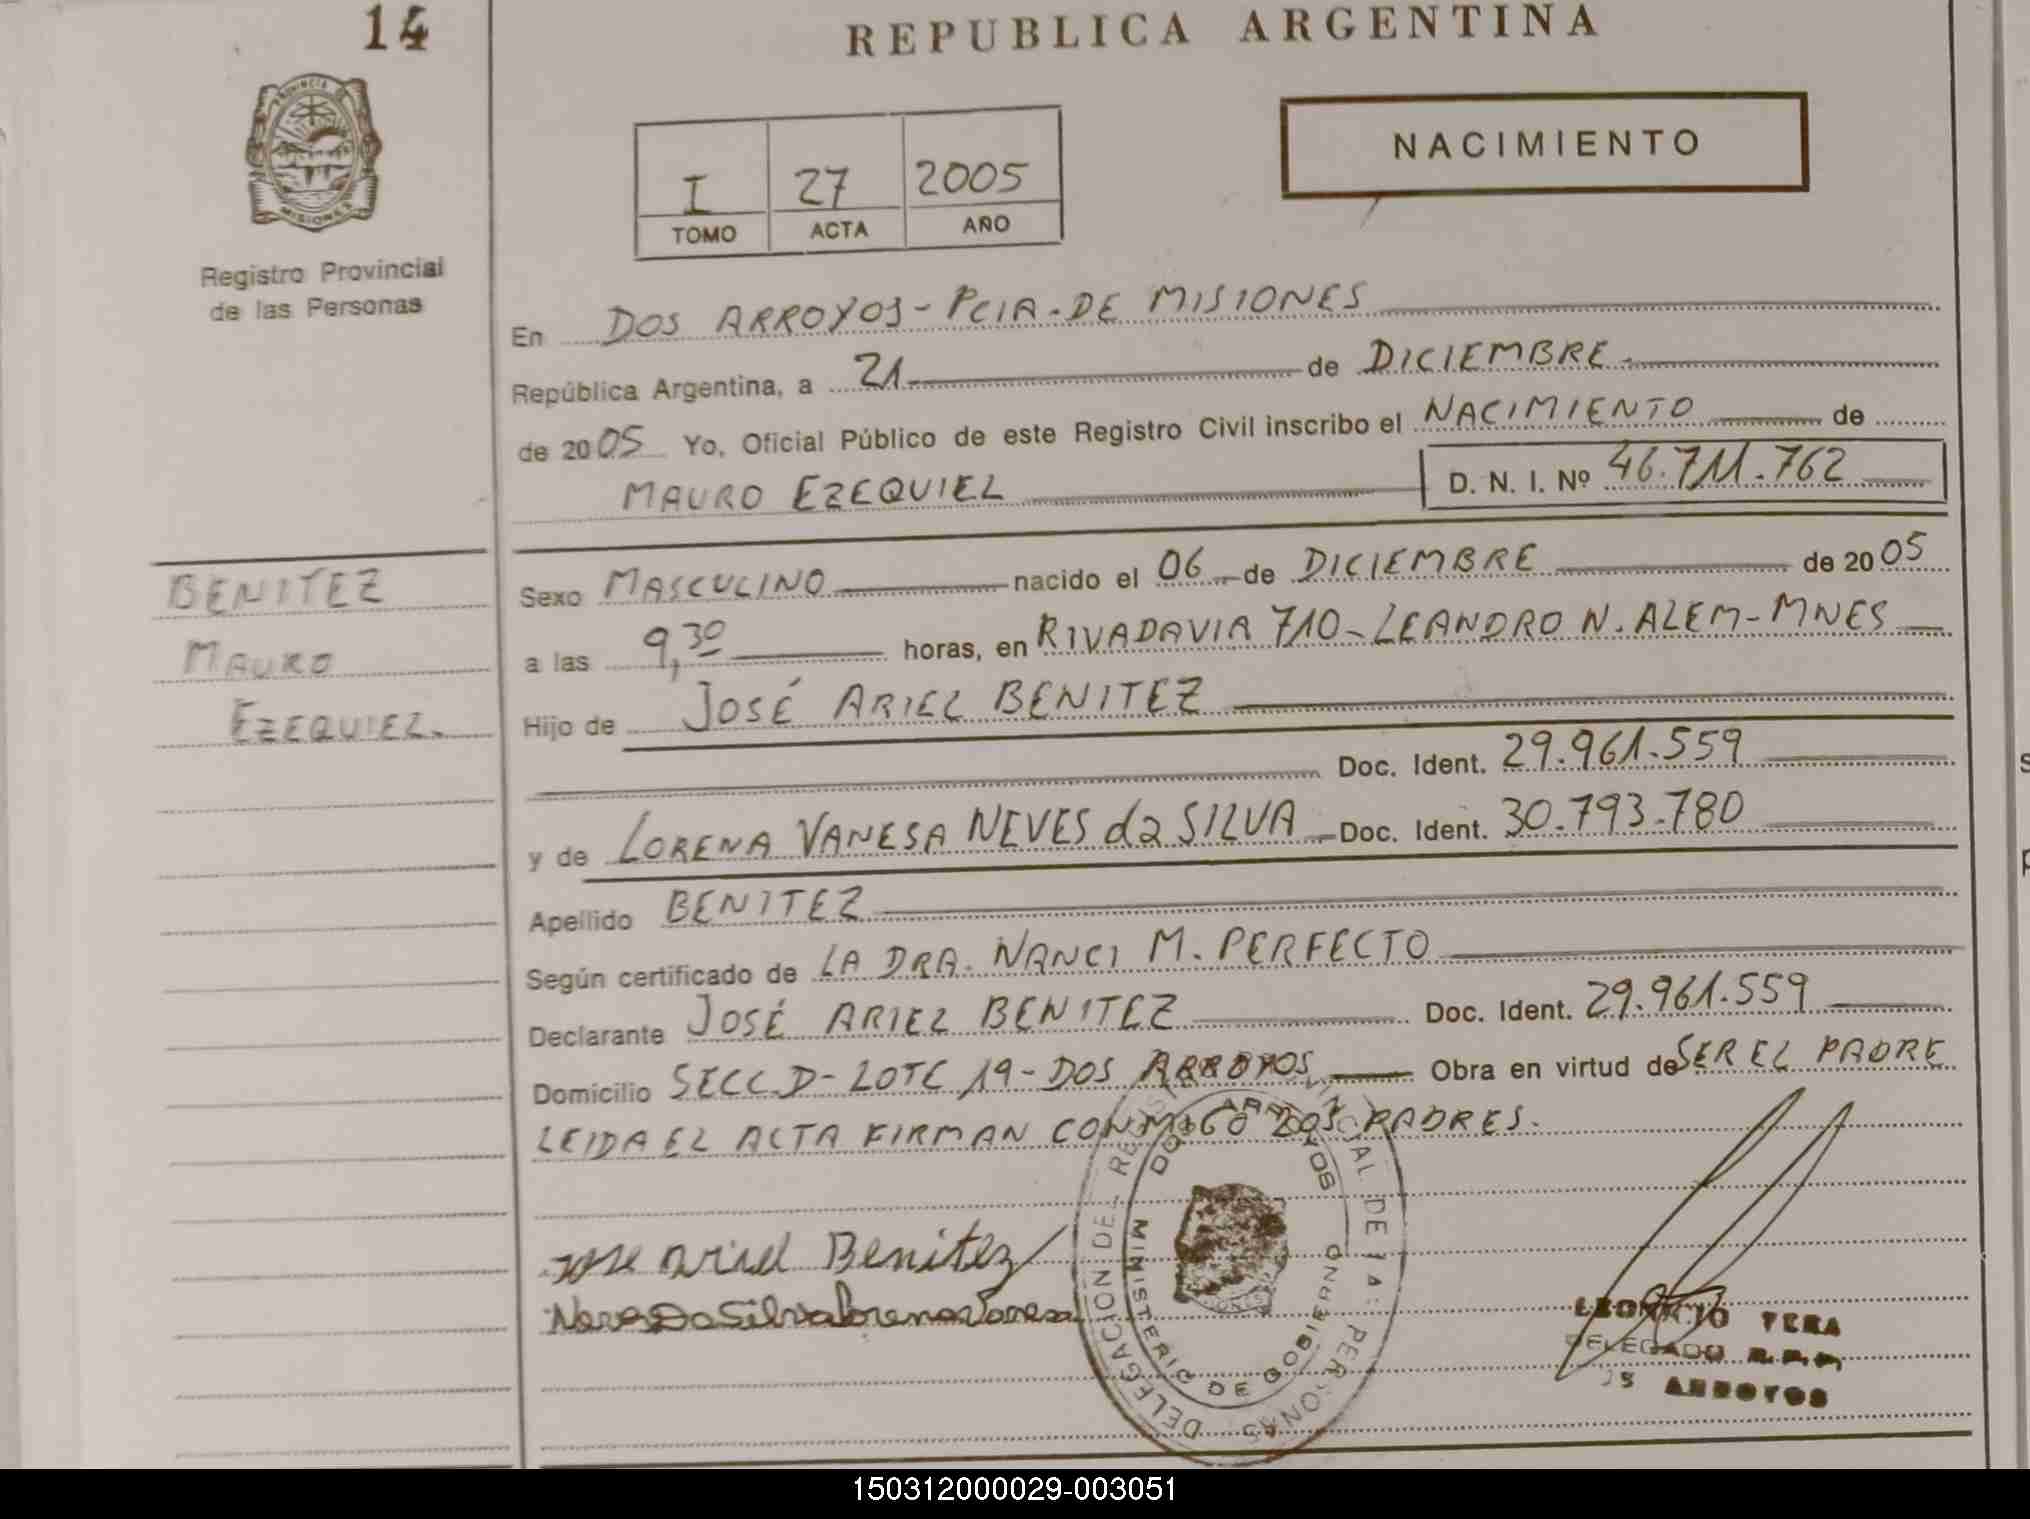 14
REPUBLICA ARGENTINA
PROVINCIA DE
MISIONES
Registro Provincial
de las Personas
NACIMIENTO
I 27 2005
TOMO ACTA AÑO
En DOS ARROYOS - PCIA. DE MISIONES
República Argentina, a 21 de DICIEMBRE.
de 2005 Yo, Oficial Público de este Registro Civil inscribo el NACIMIENTO de
MAURO EZEQUIEL D. N. I. Nº 46.711.762
BENITEZ
MAURO
EZEQUIEL.
Sexo MASCULINO nacido el 06 de DICIEMBRE de 2005
a las 9,30 horas, en RIVADAVIA 710 - LEANDRO N. ALEM - MNES
Hijo de JOSÉ ARIEL BENITEZ
Doc. Ident. 29.961.559
y de LORENA VANESA NEVES da SILVA Doc. Ident. 30.793.780
Apellido BENITEZ
Según certificado de LA DRA. NANCI M. PERFECTO
Declarante JOSÉ ARIEL BENITEZ Doc. Ident. 29.961.559
Domicilio SECC. D - LOTE 19 - DOS ARROYOS Obra en virtud de SER EL PADRE
LEIDA EL ACTA FIRMAN CONMIGO LOS PADRES.
Jose Ariel Benitez
Neves Da Silva Lorena Vanesa
DELEGACION DEL REGISTRO PROVINCIAL DE LAS PERSONAS
DOS ARROYOS
MINISTERIO DE GOBIERNO
VERA
DELEGADO R.P.P.
ARROYOS
150312000029-003051